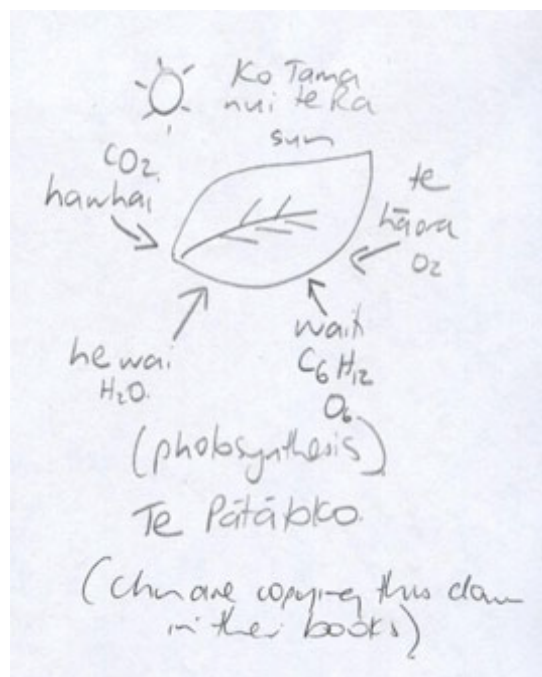 Ko Tama
nui te Ra
sun
CO2
hauhai
te
hāora
O2
he wai
H2O.
C6 H12
O6
(photosynthesis)
Te
(Chn are copying this down
in their books)